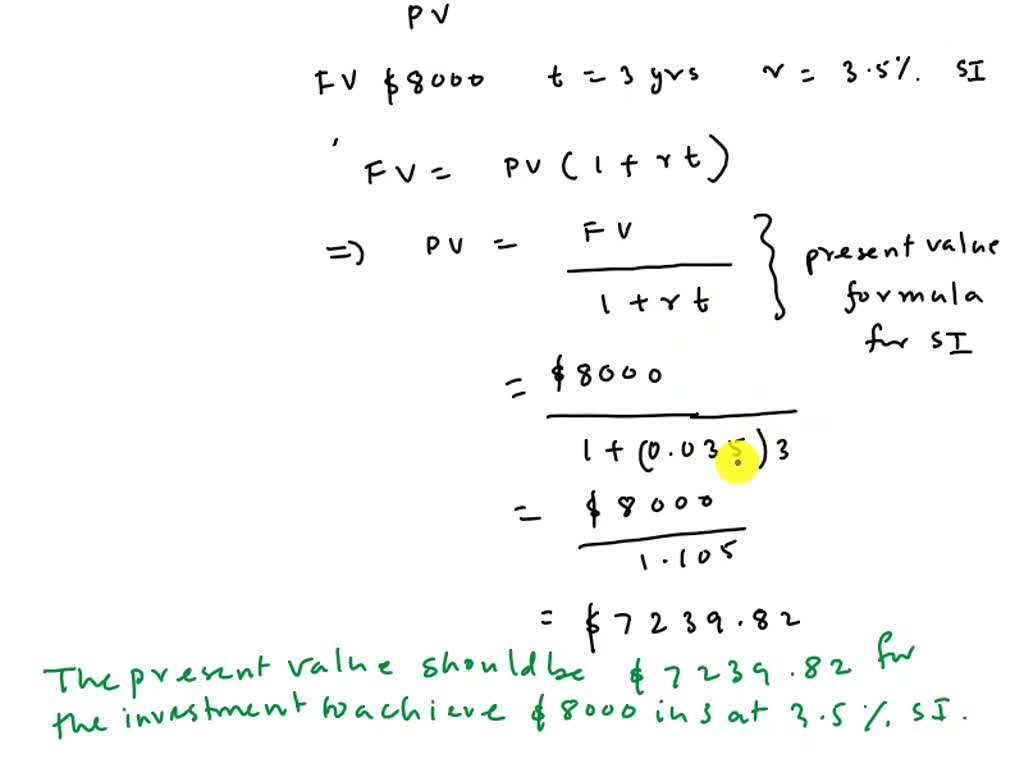 PV
FV $8000 t = 3 yrs r = 3.5% SI
FV = PV (1 + rt)
=> PV = FV
1 + rt
present value
formula
for SI
= $8000
1 + (0.035)3
= $8000
1.105
= $7239.82
The present value should be $7239.82 for
the investment to achieve $8000 in 3 at 3.5% SI.